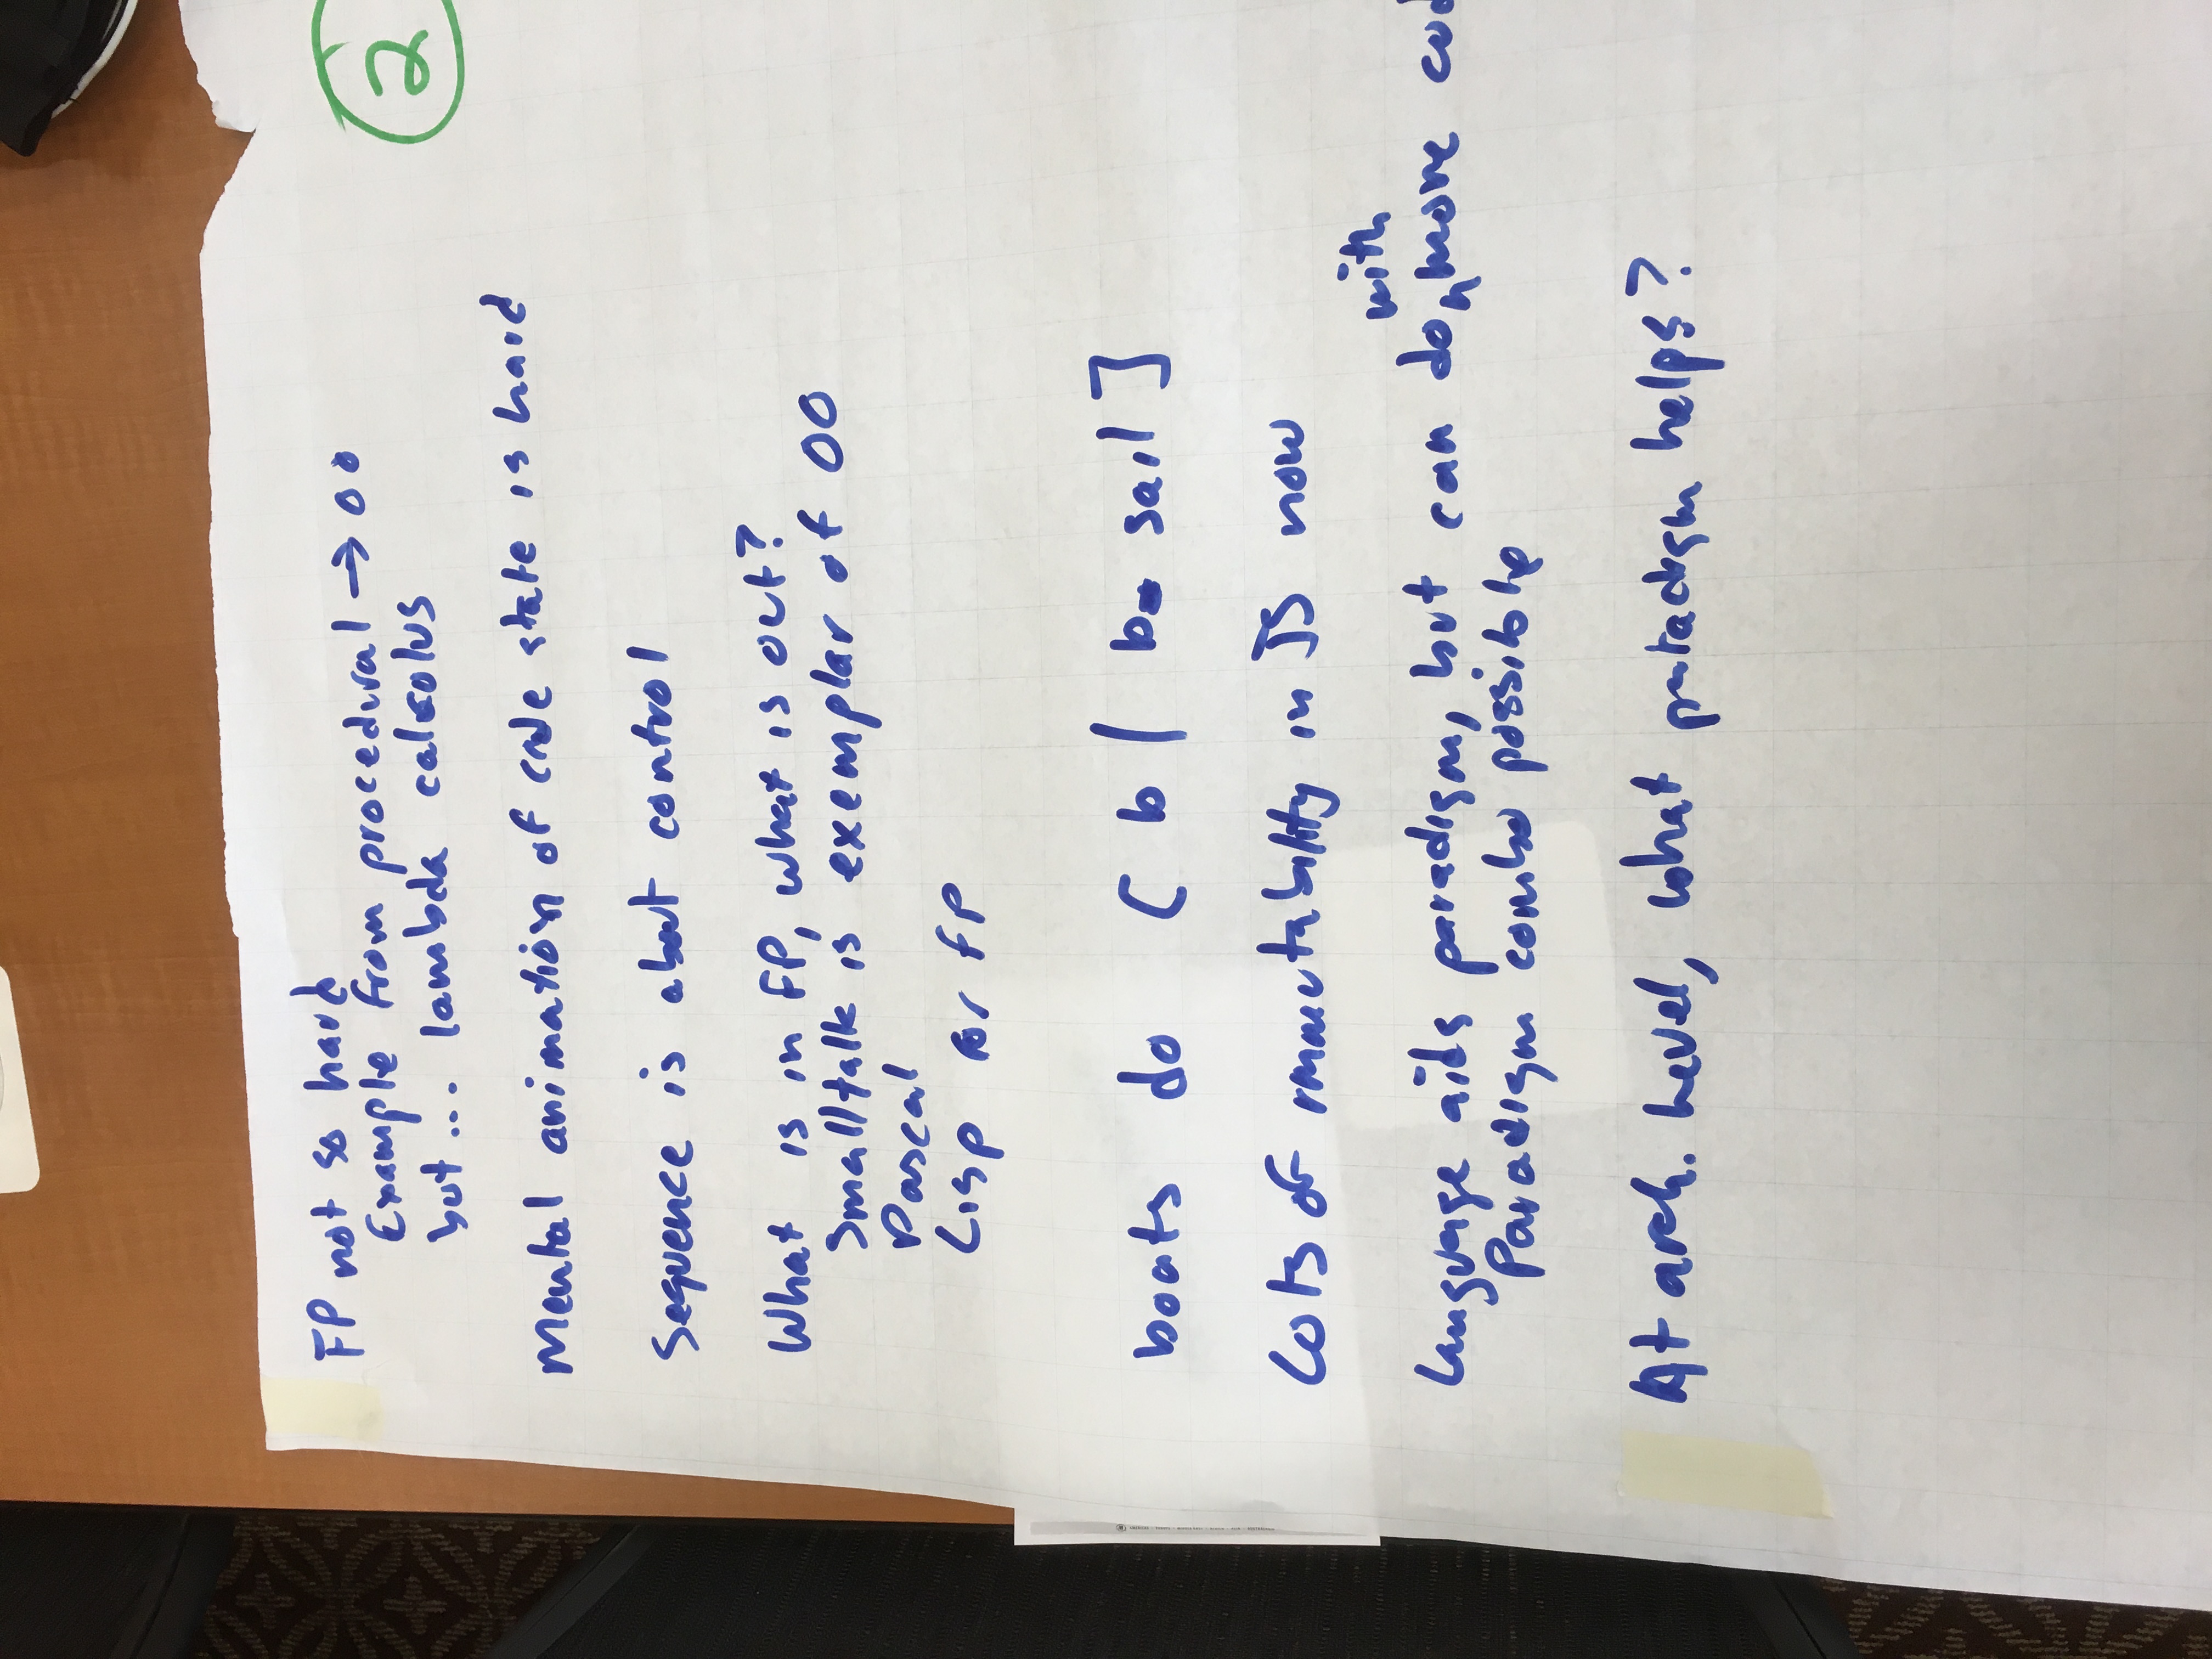 FP not so hard
Example from procedural → OO
2
but... lambda calculus
Mental animation of code state is hard
Sequence is about control
What is in FP, what is out?
Smalltalk is exemplar of OO
Pascal
Lisp for FP
boats do [ b | b sail ]
Lots of immutability in JS now
with
Language aids paradigm, but can do ^ more cod
Paradigm combo possible
At arch. level, what paradigm helps?